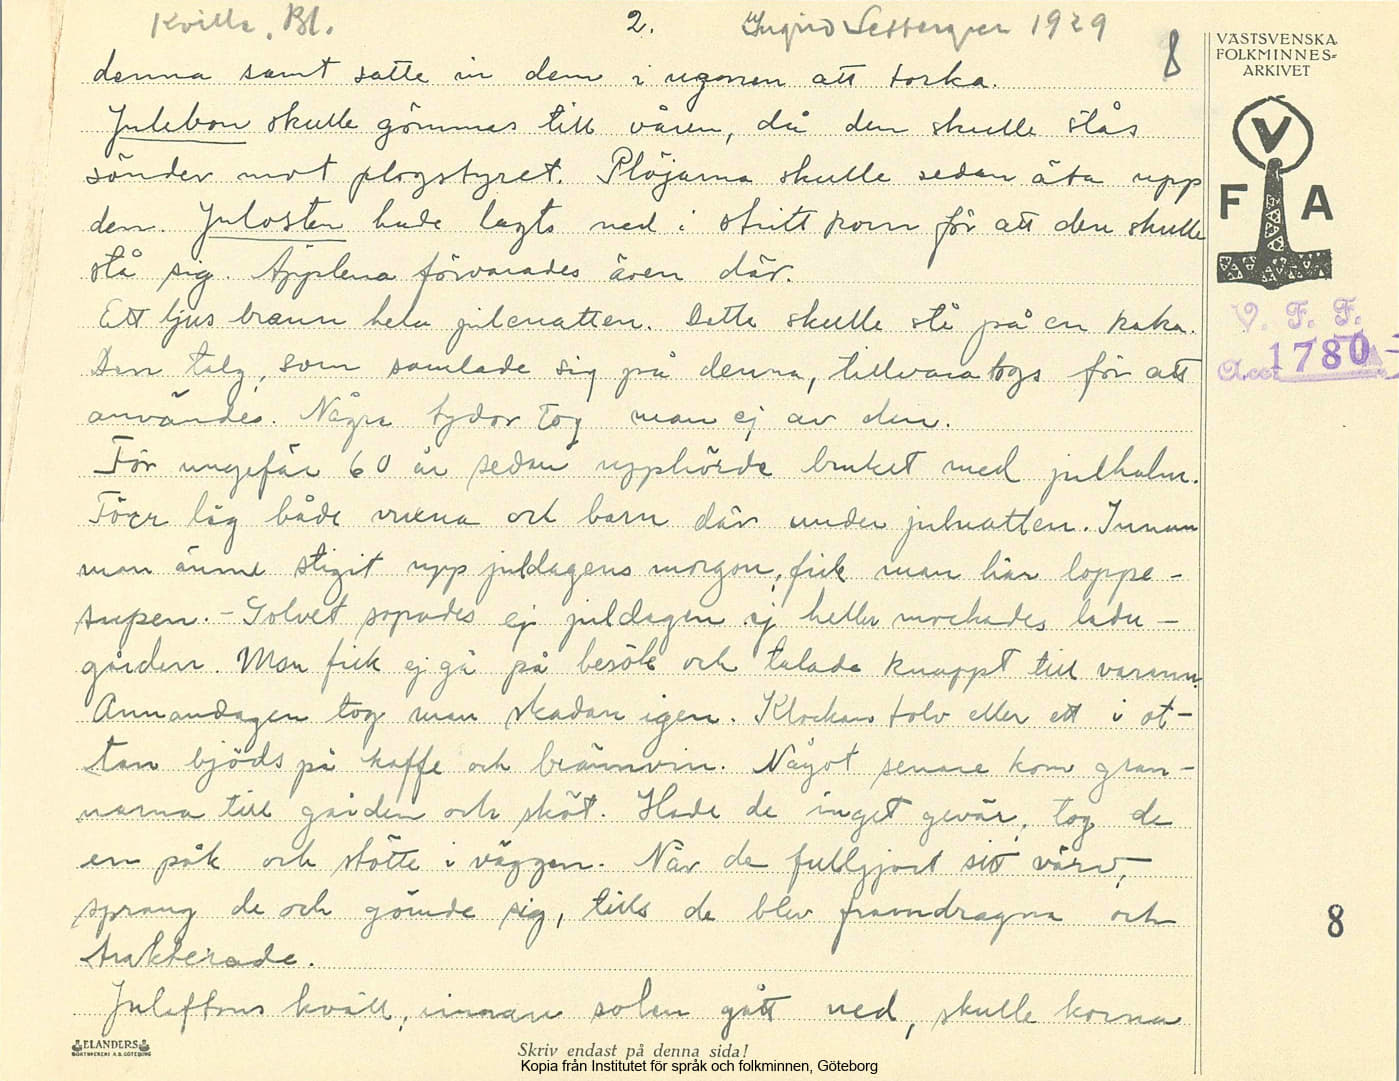 Kville, Bl.
2.
Ingrid Settergren 1929
8
VÄSTSVENSKA
FOLKMINNES-
ARKIVET
V
F A
V. F. F.
Acc. 1780
denna samt satte in dem i ugnen att torka.
Julebon skulle gömmas till våren, då den skulle slås
sönder mot plogstyret. Plöjarna skulle sedan äta upp
den. Julosten hade lagts ned i stritt korn för att den skulle
stå sig. Äpplena förvarades även där.
Ett ljus brann hela julenatten. Detta skulle stå på en kaka.
Den talg, som samlade sig på denna, tillvaratogs för att
användes. Några tydor tog man ej av den.
För ungefär 60 år sedan upphörde bruket med julhalm.
Förr låg både vuxna och barn där under julnatten. Innan
man ännu stigit upp juldagens morgon, fick man här loppe-
supen. - Golvet sopades ej juldagen ej heller mockades ladu-
gården. Man fick ej gå på besök och talade knappt till varann.
Annandagen tog man skadan igen. Klockan tolv eller ett i ot-
tan bjöds på kaffe och brännvin. Något senare kom gran-
narna till gården och sköt. Hade de inget gevär, tog de
en påk och stötte i väggen. När de fullgjort sitt värv,
sprang de och gömde sig, tills de blev framdragna och
trakterade.
Juleftons kväll, innan solen gått ned, skulle korna
8
ELANDERS
BOKTRYCKERI A.B. GÖTEBORG
Skriv endast på denna sida!
Kopia från Institutet för språk och folkminnen, Göteborg